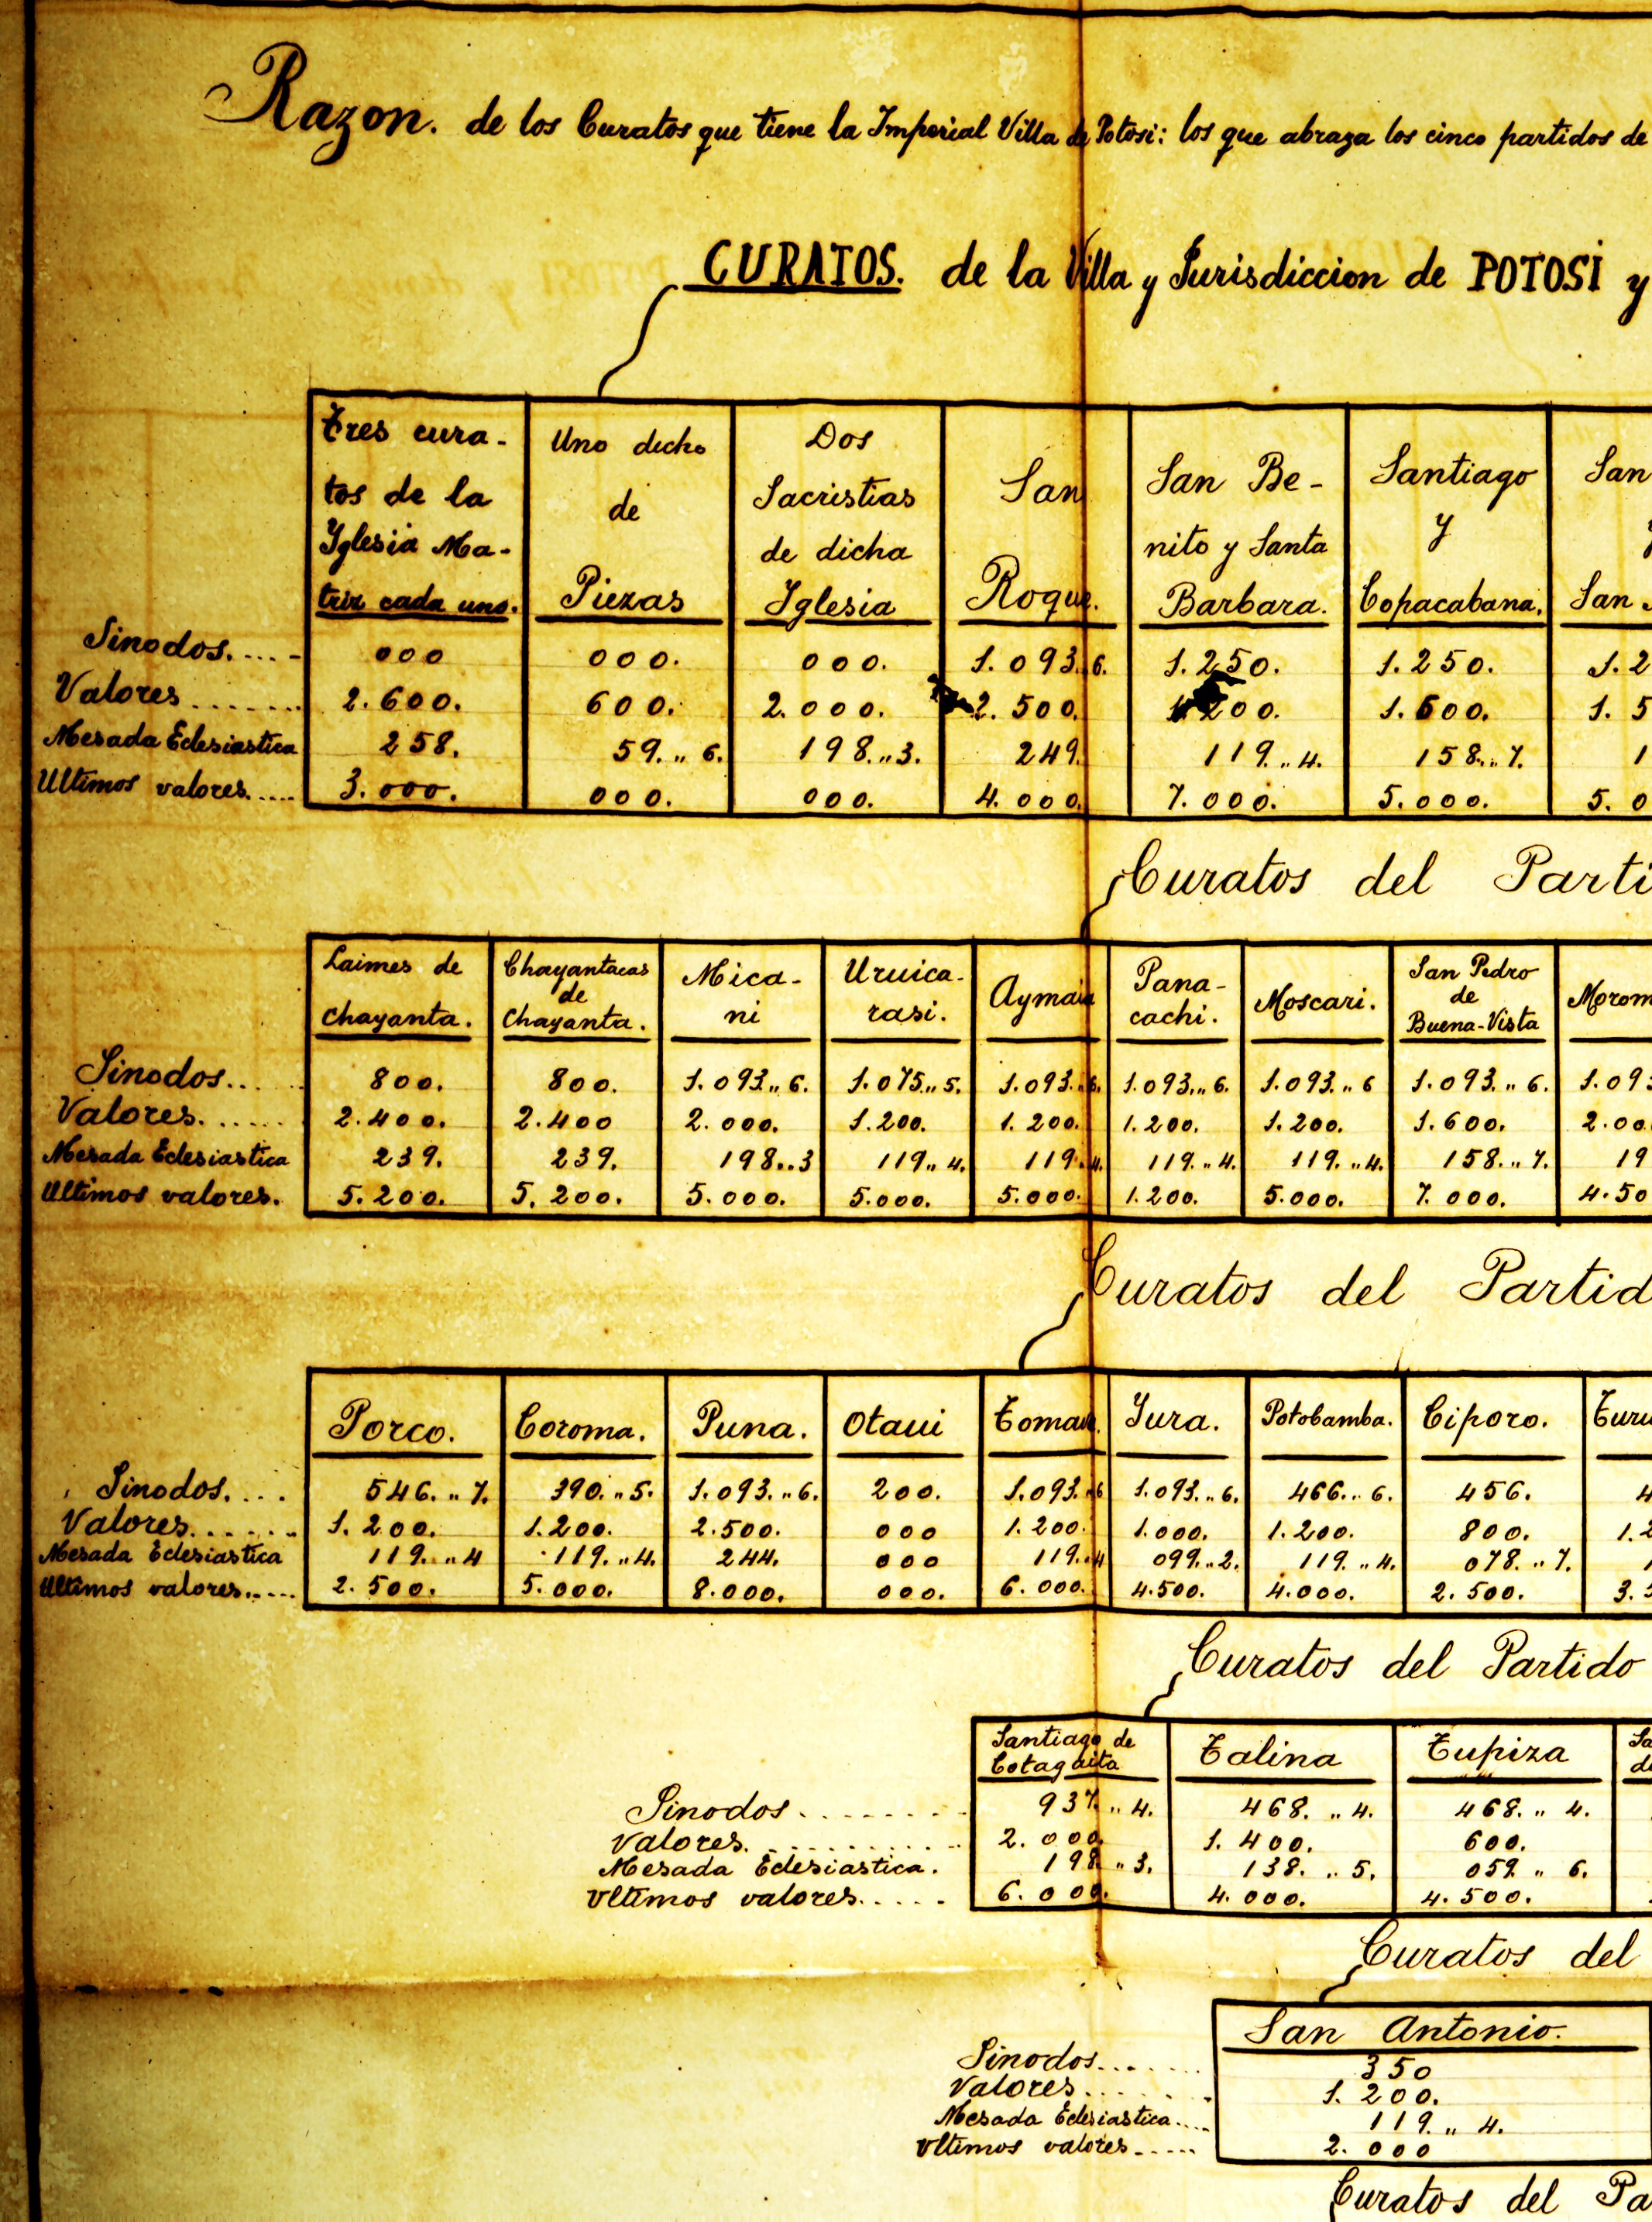 Razon. de los Curatos que tiene la Imperial Villa de Potosi: los que abraza los cinco partidos de
CURATOS. de la Villa y Jurisdiccion de POTOSI y
Tres cura- Uno dicho Dos San San Be- Santiago San
tos de la de Sacristias Roque. nito y Santa y
Yglesia Ma- Piezas de dicha Barbara. Copacabana. San
triz cada uno. Yglesia
Sinodos. 000 000. 000. 1.093..6. 1.250. 1.250. 1.2
Valores 2.600. 600. 2.000. 2.500. 200. 1.600. 1.5
Mesada Eclesiastica 258. 59.,,6. 198.,,3. 249. 119.,,4. 158.,,7. 1
Ultimos valores. 3.000. 000. 000. 4.000. 7.000. 5.000. 5.0
Curatos del Parti
Laimes de Chayantacas Mica- Uruica- Aymaia Pana- Moscari. San Pedro Morom
Chayanta. de ni rasi. cachi. de
Chayanta. Buena-Vista
Sinodos. 800. 800. 1.093.,,6. 1.075.,,5. 1.093.,,6. 1.093.,,6. 1.093.,,6 1.093.,,6. 1.093
Valores. 2.400. 2.400 2.000. 1.200. 1.200. 1.200. 1.200. 1.600. 2.00
Mesada Eclesiastica 239. 239. 198..3 119.,,4. 119.,,4. 119.,,4. 119.,,4. 158.,,7. 19
Ultimos valores. 5.200. 5.200. 5.000. 5.000. 5.000. 1.200. 5.000. 7.000. 4.50
Curatos del Partid
Porco. Coroma. Puna. Otaui Tomave. Yura. Potobamba. Ciporo. Turu
Sinodos. 546.,,7. 390.,,5. 1.093.,,6. 200. 1.093.,,6 1.093.,,6. 466.,,6. 456. 4
Valores. 1.200. 1.200. 2.500. 000 1.200. 1.000. 1.200. 800. 1.2
Mesada Eclesiastica 119.,,4 119.,,4. 244. 000 119.,,4 099.,,2. 119.,,4. 078.,,7. 1
Ultimos valores. 2.500. 5.000. 8.000. 000. 6.000. 4.500. 4.000. 2.500. 3.5
Curatos del Partido
Santiago de Talina Tupiza Sa
Cotagaita d
Sinodos 937.,,4. 468.,,4. 468.,,4.
Valores. 2.000. 1.400. 600.
Mesada Eclesiastica. 198,,3. 138.,,5. 059.,,6.
Ultimos valores. 6.000. 4.000. 4.500.
Curatos del
San Antonio.
Sinodos. 350
Valores 1.200.
Mesada Eclesiastica. 119.,,4.
Ultimos valores 2.000
Curatos del Pa